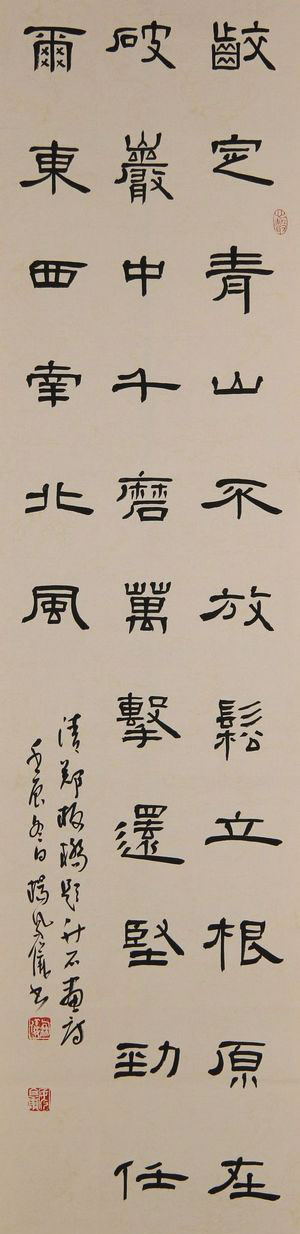 齩定青山不放鬆立根原在
破巖中千磨萬擊還堅勁任
爾東西南北風
清鄭板橋題竹石畫詩
壬辰冬日楊鳳儀書